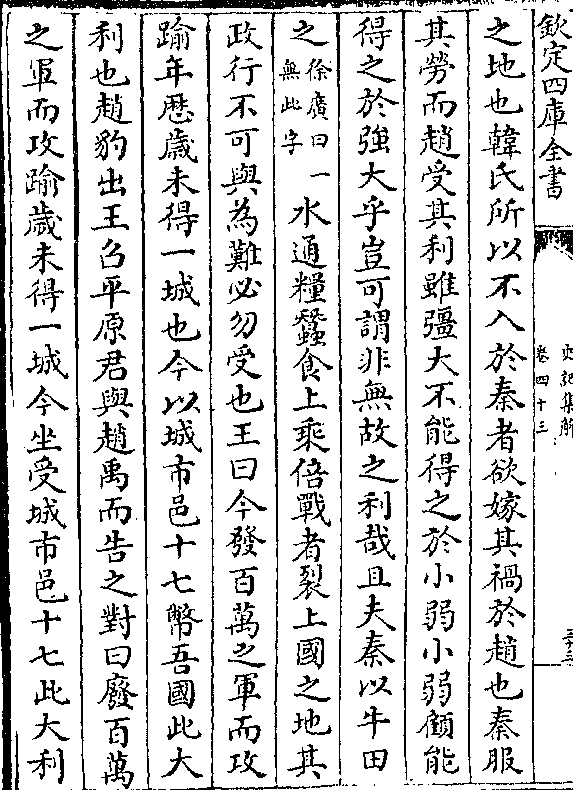 欽定四庫全書
史記集解
卷四十三
之地也韓氏所以不入於秦者欲嫁其禍於趙也秦服
其勞而趙受其利雖彊大不能得之於小弱小弱顧能
得之於強大乎豈可謂非無故之利哉且夫秦以牛田
之徐廣曰一無此字水通糧蠶食上乘倍戰者裂上國之地其
政行不可與為難必勿受也王曰今發百萬之軍而攻
踰年歷歲未得一城也今以城市邑十七幣吾國此大
利也趙豹出王召平原君與趙禹而告之對曰廢百萬
之軍而攻踰歲未得一城今坐受城市邑十七此大利